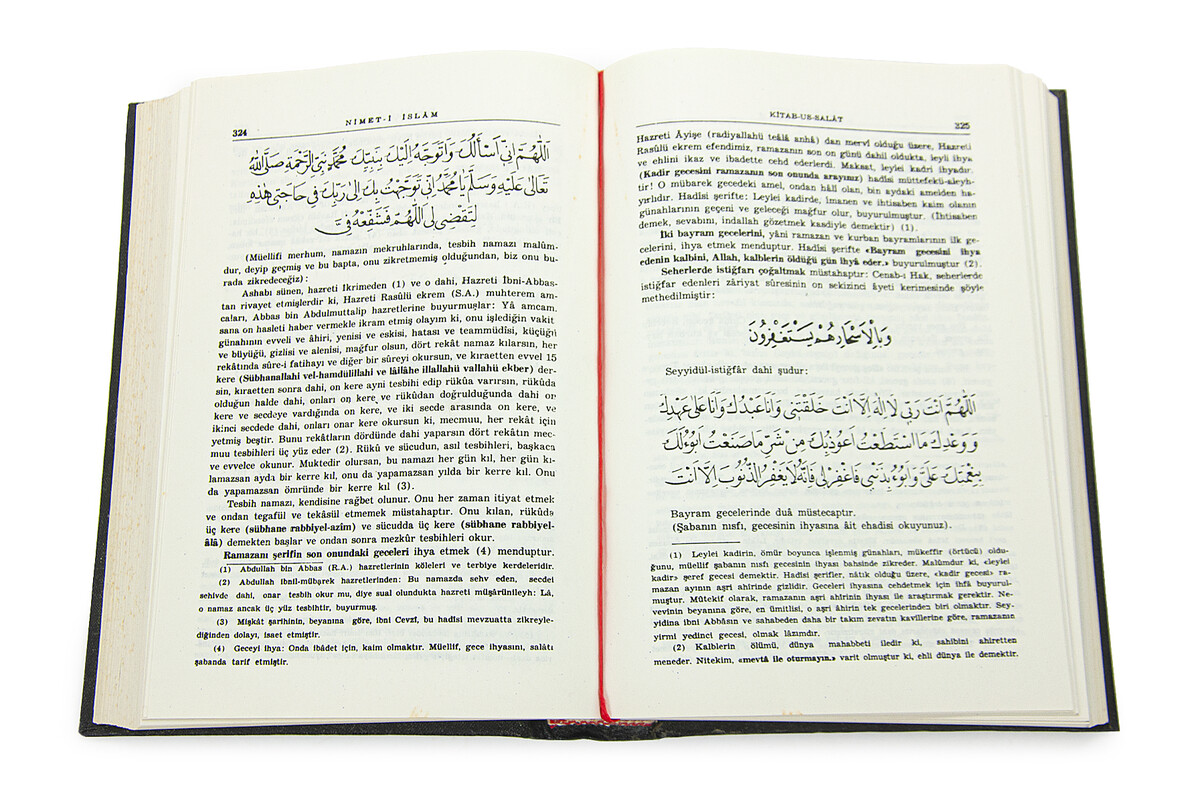 324
NİMET-İ İSLÂM
اَللّٰهُمَّ اِنّٖي اَسْأَلُكَ وَاَتَوَجَّهُ اِلَيْكَ بِنَبِيِّكَ مُحَمَّدٍ نَبِيِّ الرَّحْمَةِ صَلَّى اللّٰهُ
تَعَالٰى عَلَيْهِ وَسَلَّمَ يَا مُحَمَّدُ اِنّٖي تَوَجَّهْتُ بِكَ اِلٰى رَبِّكَ فٖي حَاجَتٖي هٰذِهِ
لِتُقْضٰى لٖي اَللّٰهُمَّ فَشَفِّعْهُ فِيَّ
(Müellifi merhum, namazın mekruhlarında, tesbih namazı malûm-
dur, deyip geçmiş ve bu bapta, onu zikretmemiş olduğundan, biz onu bu-
rada zikredeceğiz) :
Ashabı sünen, hazreti Ikrimeden (1) ve o dahi, Hazreti İbni-Abbas-
tan rivayet etmişlerdir ki, Hazreti Rasûlü ekrem (S.A.) muhterem am-
caları, Abbas bin Abdulmuttalip hazretlerine buyurmuşlar: Yâ amcam,
sana on hasleti haber vermekle ikram etmiş olayım ki, onu işlediğin vakit
günahının evveli ve âhiri, yenisi ve eskisi, hatası ve teammüdîsi, küçüğü
ve büyüğü, gizlisi ve alenisi, mağfur olsun, dört rekât namaz kılarsın, her
rekâtında sûre-i fatihayı ve diğer bir sûreyi okursun, ve kıraetten evvel 15
kere (Sübhanallahi vel-hamdülillahi ve lâilâhe illallahü vallahü ekber) der-
sin, kıraetten sonra dahi, on kere ayni tesbihi edip rükûa varırsın, rükûda
olduğun halde dahi, onları on kere ve rükûdan doğrulduğunda dahi on
kere ve secdeye vardığında on kere, ve iki secde arasında on kere, ve
ikinci secdede dahi, onları onar kere okursun ki, mecmuu, her rekât için
yetmiş beştir. Bunu rekâtların dördünde dahi yaparsın dört rekâtın mec-
muu tesbihleri üç yüz eder (2). Rükû ve sücudun, asıl tesbihleri, başkaca
ve evvelce okunur. Muktedir olursan, bu namazı her gün kıl, her gün kı-
lamazsan ayda bir kerre kıl, onu da yapamazsan yılda bir kerre kıl. Onu
da yapamazsan ömründe bir kerre kıl (3).
Tesbih namazı, kendisine rağbet olunur. Onu her zaman itiyat etmek
ve ondan tegafül ve tekâsül etmemek müstahaptır. Onu kılan, rükûda
üç kere (sübhane rabbiyel-azîm) ve sücudda üç kere (sübhane rabbiyel-
âlâ) demekten başlar ve ondan sonra mezkûr tesbihleri okur.
Ramazanı şerifin son onundaki geceleri ihya etmek (4) menduptur.
(1) Abdullah bin Abbas (R.A.) hazretlerinin köleleri ve terbiye kerdeleridir.
(2) Abdullah ibnil-mübarek hazretlerinden: Bu namazda sehv eden, secdei
sehivde dahi, onar tesbih okur mu, diye sual olundukta hazreti müşârünileyh: Lâ,
o namaz ancak üç yüz tesbihtir, buyurmuş.
(3) Mişkât şarihinin, beyanına göre, ibni Cevzî, bu hadîsi mevzuatta zikreyle-
diğinden dolayı, isaet etmiştir.
(4) Geceyi ihya: Onda ibâdet için, kaim olmaktır. Müellif, gece ihyasını, salâtı
şabanda tarif etmiştir.
KİTAB-US-SALÂT
325
Hazreti Âyişe (radiyallahü teâlâ anhâ) dan mervî olduğu üzere, Hazreti
Rasûlü ekrem efendimiz, ramazanın son on günü dahil oldukta, leyli ihya
ve ehlini ikaz ve ibadette cehd ederlerdi. Maksat, leylei kadri ihyadır.
(Kadir gecesini ramazanın son onunda arayınız) hadîsi müttefekü-aleyh-
tir! O mübarek gecedeki amel, ondan hâli olan, bin aydaki amelden ha-
yırlıdır. Hadîsi şerifte: Leylei kadirde, îmanen ve ihtisaben kaim olanın
günahlarının geçeni ve geleceği mağfur olur, buyurulmuştur. (İhtisaben
demek, sevabını, indallah gözetmek kasdiyle demektir) (1).
İki bayram gecelerini, yâni ramazan ve kurban bayramlarının ilk ge-
celerini, ihya etmek menduptur. Hadîsi şerifte «Bayram gecesini ihya
edenin kalbini, Allah, kalblerin öldüğü gün ihya eder.» buyurulmuştur (2).
Seherlerde istiğfarı çoğaltmak müstahaptır: Cenab-ı Hak, seherlerde
istiğfar edenleri zâriyat sûresinin on sekizinci âyeti kerimesinde şöyle
methedilmiştir:
وَبِالْاَسْحَارِ هُمْ يَسْتَغْفِرُونَ
Seyyidül-istiğfâr dahi şudur:
اَللّٰهُمَّ اَنْتَ رَبّٖي لَا اِلٰهَ اِلَّا اَنْتَ خَلَقْتَنٖي وَاَنَا عَبْدُكَ وَاَنَا عَلٰى عَهْدِكَ
وَوَعْدِكَ مَا اسْتَطَعْتُ اَعُوذُ بِكَ مِنْ شَرِّ مَا صَنَعْتُ اَبُوءُ لَكَ
بِنِعْمَتِكَ عَلَيَّ وَاَبُوءُ بِذَنْبٖي فَاغْفِرْ لٖي فَاِنَّهُ لَا يَغْفِرُ الذُّنُوبَ اِلَّا اَنْتَ
Bayram gecelerinde duâ müstecaptır.
(Şabanın nısfı, gecesinin ihyasına âit ehadisi okuyunuz).
(1) Leylei kadirin, ömür boyunca işlenmiş günahları, mükeffir (örtücü) oldu-
ğunu, müellif şabanın nısfı gecesinin ihyası bahsinde zikreder. Malûmdur ki, «leylei
kadir» şeref gecesi demektir. Hadîsi şerifler, nâtık olduğu üzere, «kadir gecesi» ra-
mazan ayının aşri ahîrinde gizlidir. Geceleri ihyasına cehdetmek için ihfâ buyurul-
muştur. Mütekif olarak, ramazanın aşri ahîrinin ihyası ile araştırmak gerektir. Ne-
vevînin beyanına göre, en ümitlisi, o aşri âhirin tek gecelerinden biri olmaktır. Sey-
yidina ibni Abbâsın ve sahabeden daha bir takım zevatın kavillerine göre, ramazanın
yirmi yedinci gecesi, olmak lâzımdır.
(2) Kalblerin ölümü, dünya mahabbeti iledir ki, sahibini ahiretten
meneder. Nitekim, «mevtâ ile oturmayın.» varit olmuştur ki, ehli dünya ile demektir.